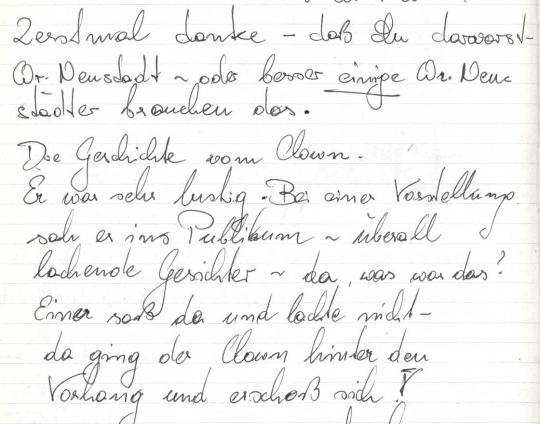 Zerstmal danke – daß Du da warst –
Wr. Neustadt ~ oder besser einige Wr. Neu-
städter brauchen das.
Die Geschichte vom Clown.
Er war sehr lustig. Bei einer Vorstellung
sah er ins Publikum ~ überall
lachende Gesichter ~ da, was war das?
Einer saß da und lachte nicht –
da ging der Clown hinter den
Vorhang und erschoß sich!